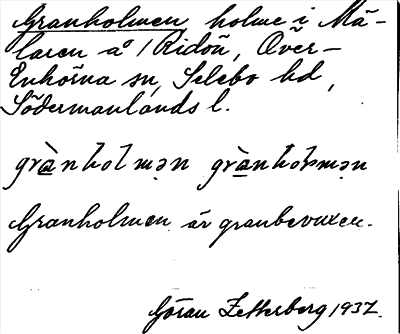 Granholmen holme i Mä-
laren å /Ridön, Över-
Enhörna sn, Selebo hd,
Södermanlands l.
grànholmən grànhoɫmən
Granholmen är granbevuxen.
Göran Zetterberg 1937.